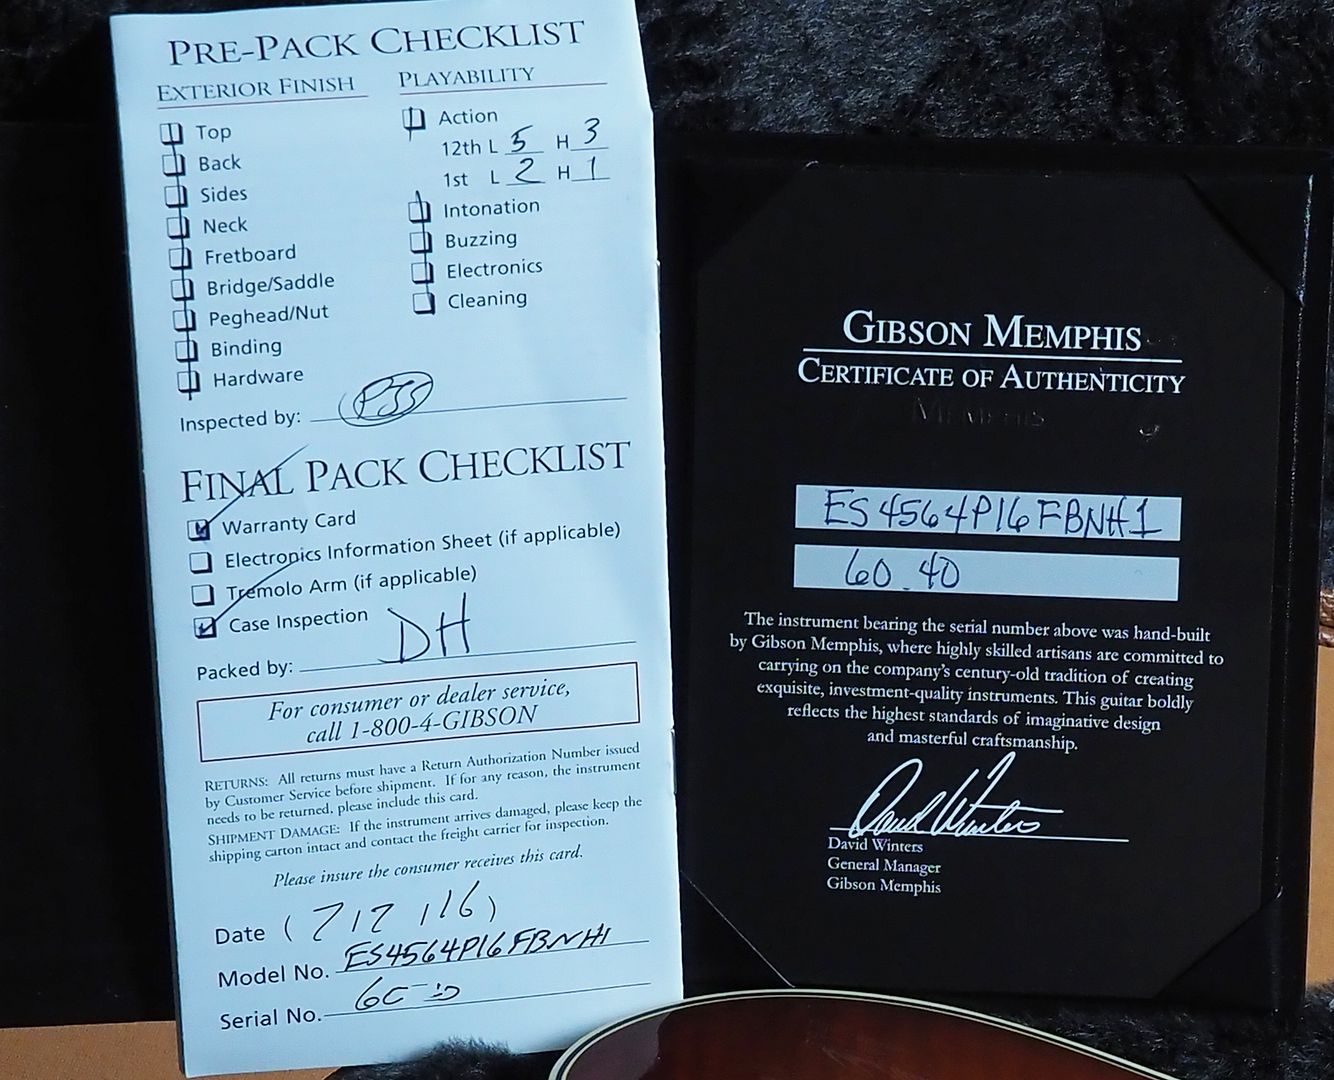 PRE-PACK CHECKLIST
EXTERIOR FINISH
Top
Back
Sides
Neck
Fretboard
Bridge/Saddle
Peghead/Nut
Binding
Hardware
PLAYABILITY
Action
12th L 5 H 3
1st L 2 H 1
Intonation
Buzzing
Electronics
Cleaning
Inspected by:
FINAL PACK CHECKLIST
Warranty Card
Electronics Information Sheet (if applicable)
Tremolo Arm (if applicable)
Case Inspection
Packed by: DH
For consumer or dealer service,
call 1-800-4-GIBSON
RETURNS: All returns must have a Return Authorization Number issued
by Customer Service before shipment. If for any reason, the instrument
needs to be returned, please include this card.
SHIPMENT DAMAGE: If the instrument arrives damaged, please keep the
shipping carton intact and contact the freight carrier for inspection.
Please insure the consumer receives this card.
Date
Model No. ES4564P16FBNH1
Serial No.
GIBSON MEMPHIS
CERTIFICATE OF AUTHENTICITY
MEMPHIS
ES4564P16FBNH1
60.40
The instrument bearing the serial number above was hand-built
by Gibson Memphis, where highly skilled artisans are committed to
carrying on the company's century-old tradition of creating
exquisite, investment-quality instruments. This guitar boldly
reflects the highest standards of imaginative design
and masterful craftsmanship.
David Winters
David Winters
General Manager
Gibson Memphis